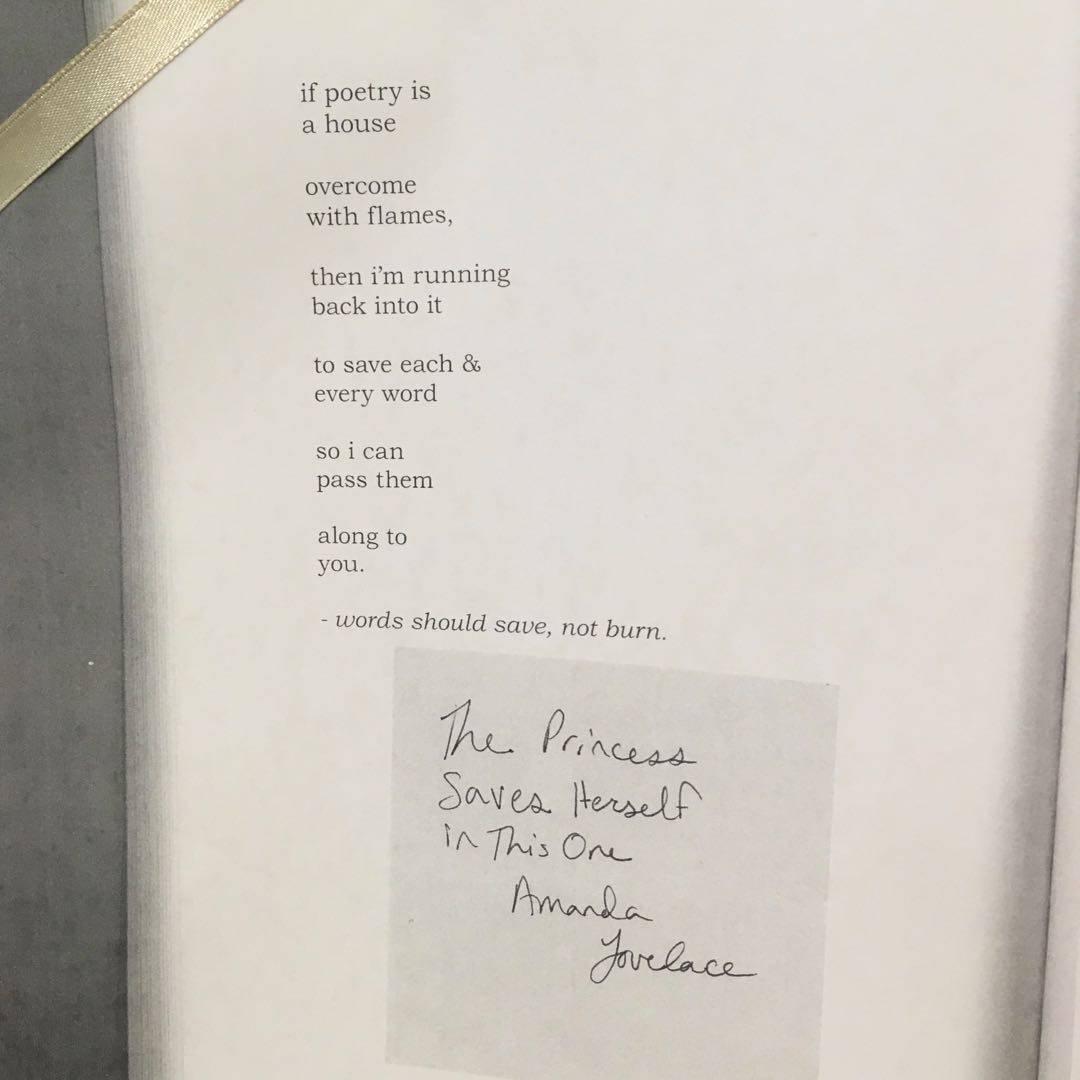 if poetry is
a house
overcome
with flames,
then i'm running
back into it
to save each &
every word
so i can
pass them
along to
you.
- words should save, not burn.
The Princess
Saves Herself
in This One
Amanda
Lovelace